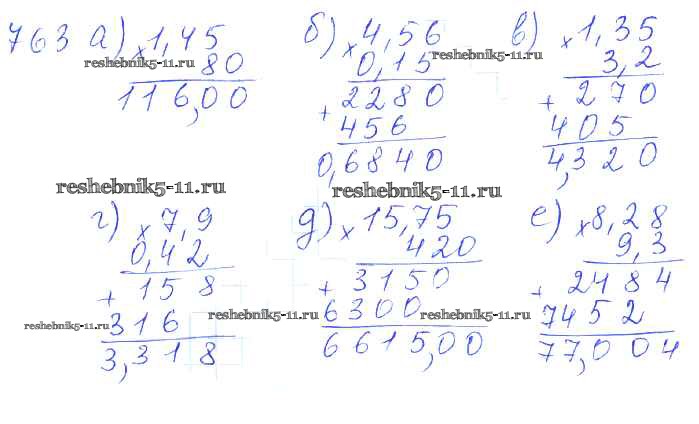 763 а) × 1,45 б) × 4,56 в) × 1,35
80 0,15 3,2
reshebnik5-11.ru reshebnik5-11.ru
116,00 + 2280 + 270
456 405
0,6840 4,320
reshebnik5-11.ru reshebnik5-11.ru
г) × 7,9 д) × 15,75 е) × 8,28
0,42 420 9,3
+ 158 + 3150 + 2484
reshebnik5-11.ru reshebnik5-11.ru reshebnik5-11.ru
316 6300 7452
3,318 6615,00 77,004